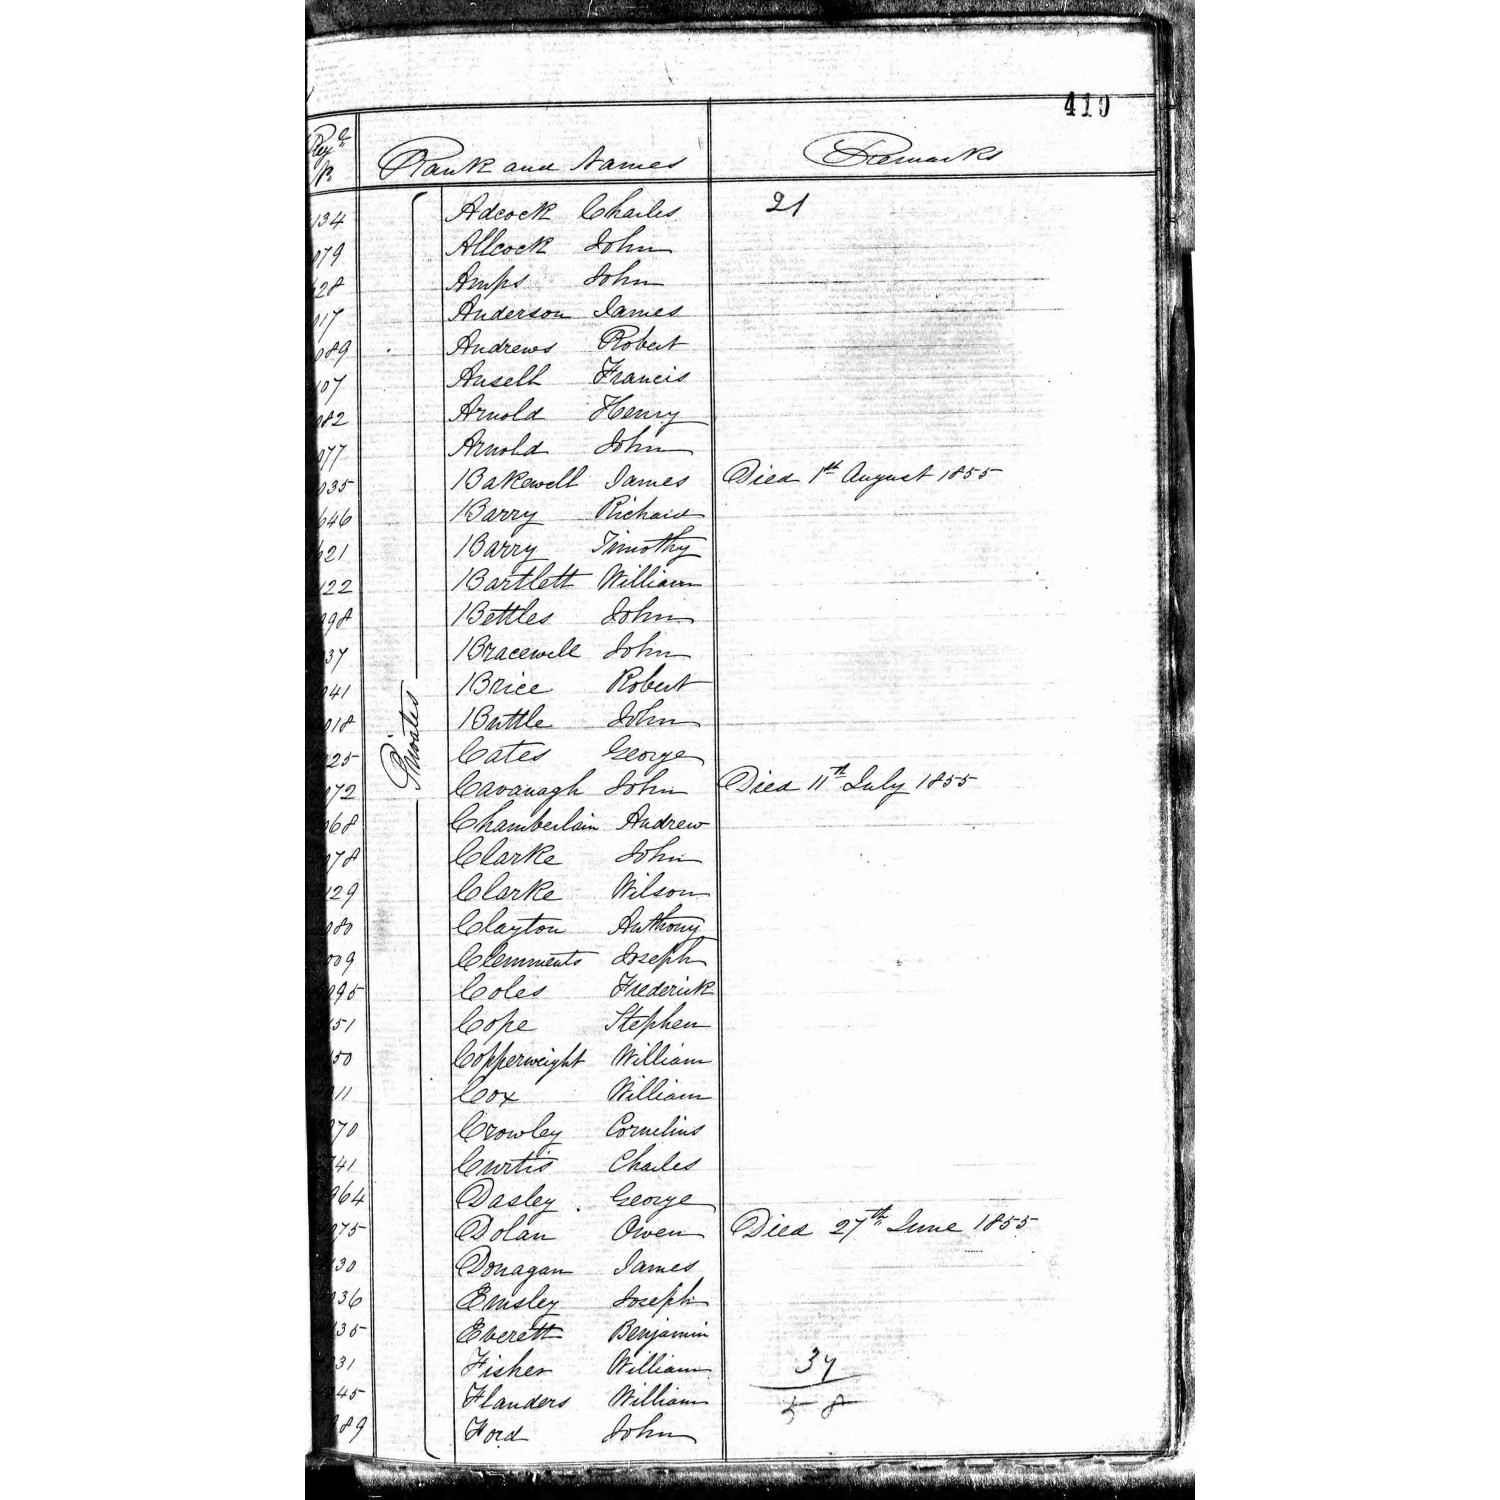 410
Regl No Rank and Names Remarks
134 Adcock Charles 21
079 Allcock John
128 Amps John
017 Anderson James
089 Andrews Robert
107 Ansell Francis
082 Arnold Henry
077 Arnold John
035 Bakewell James Died 1st August 1855
646 Barry Richard
621 Barry Timothy
122 Bartlett William
098 Bettles John
037 Bracewell John
041 Brice Robert
018 Buttle John
Privates
025 Cates George
072 Cavanagh John Died 11th July 1855
068 Chamberlain Andrew
078 Clarke John
129 Clarke Wilson
080 Clayton Anthony
009 Clemments Joseph
095 Coles Frederick
151 Cope Stephen
150 Copperweight William
011 Cox William
970 Crowley Cornelius
741 Curtis Charles
964 Dasley George
075 Dolan Owen Died 27th June 1855
130 Donagan James
036 Emsley Joseph
135 Everett Benjamin
031 Fisher William 37
045 Flanders William 58
989 Ford John